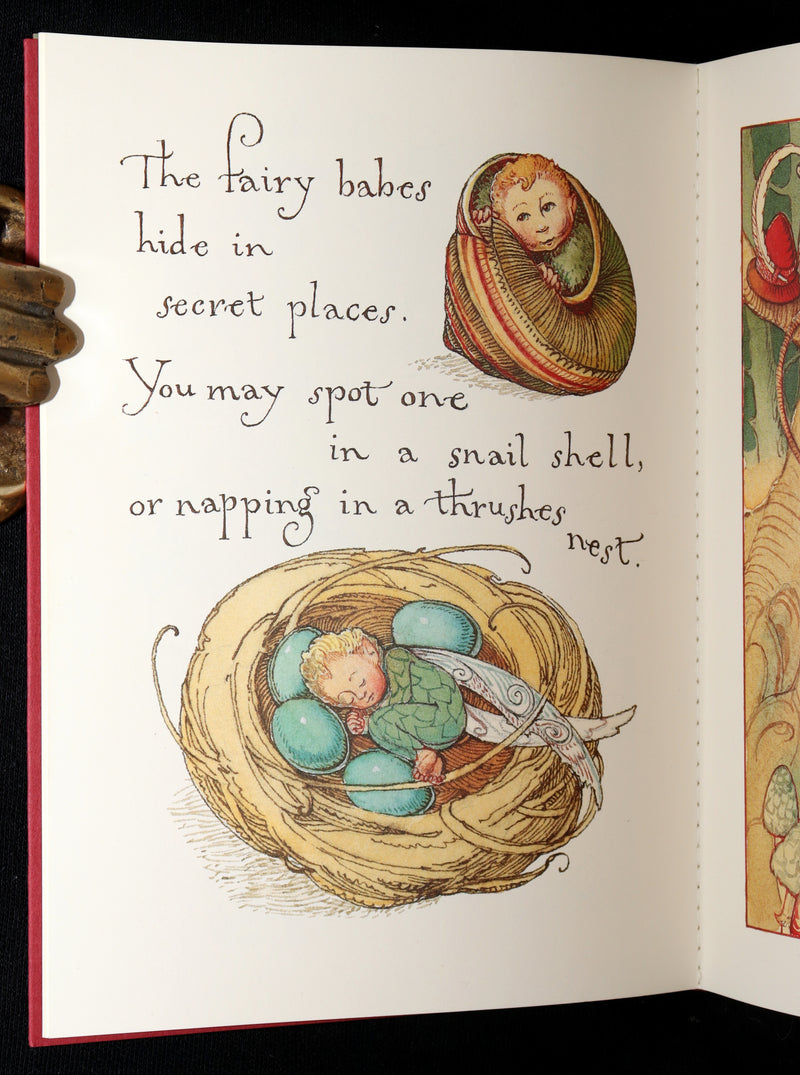 The fairy babes
hide in
secret places.
You may spot one
in a snail shell,
or napping in a thrushes
nest.